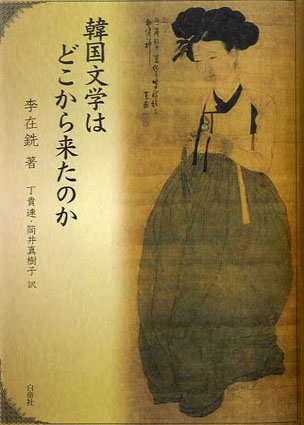 韓国文学は
どこから来たのか
李在銑 著
丁貴連・筒井真樹子 訳
白帝社